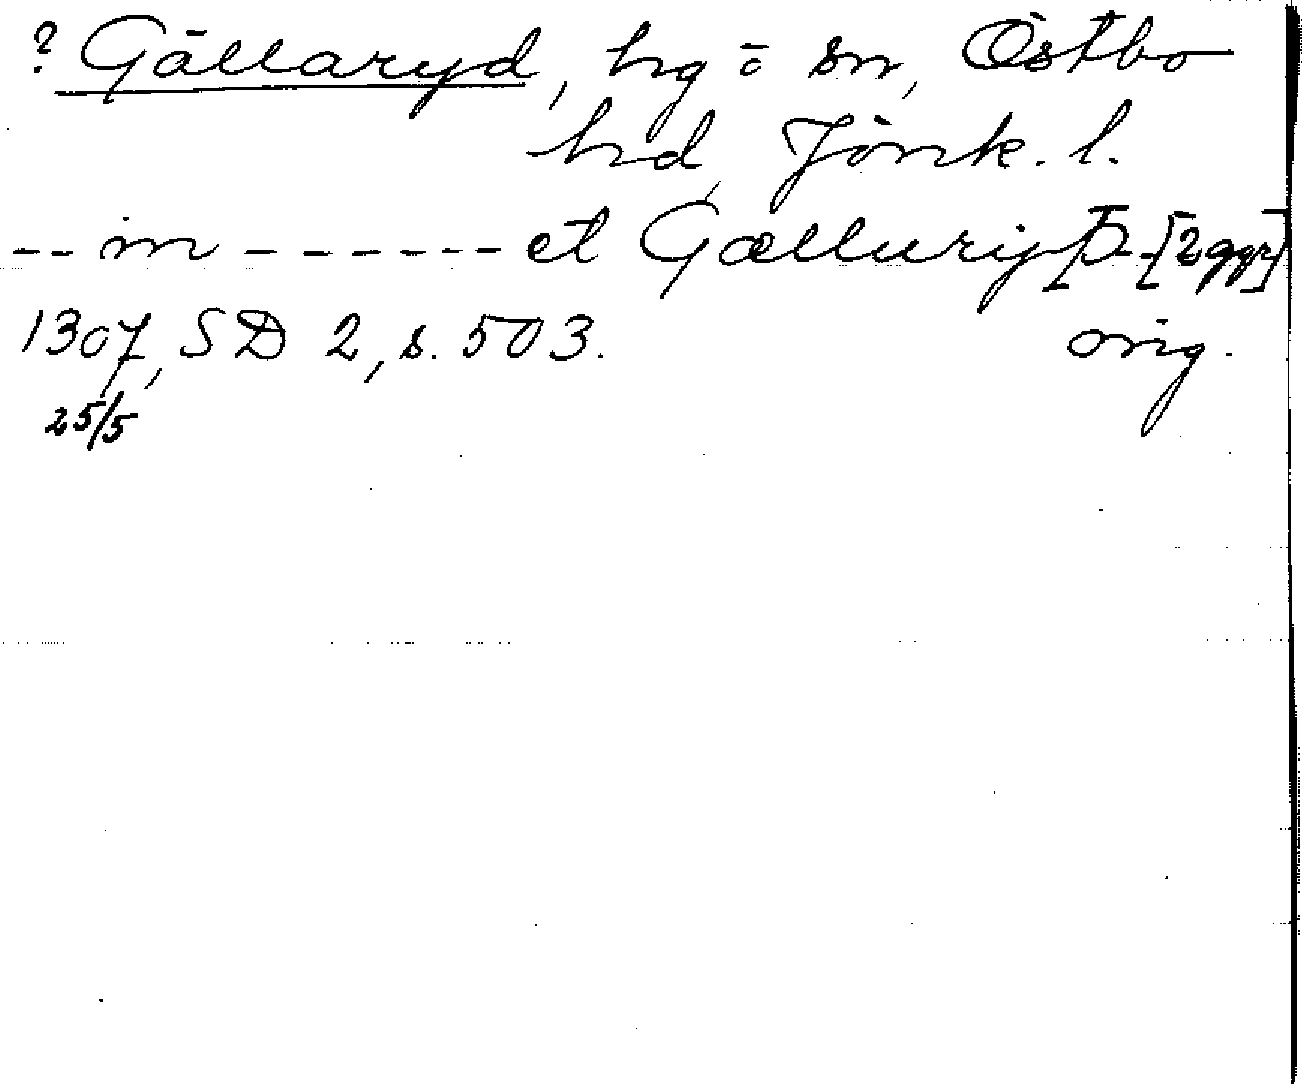 ? Gällaryd, hg o sn, Östbo
hd, Jönk. l.
-- in ------- et Gælluryþ--[2 ggr]
1307, SD 2, s. 503. orig.
25/5